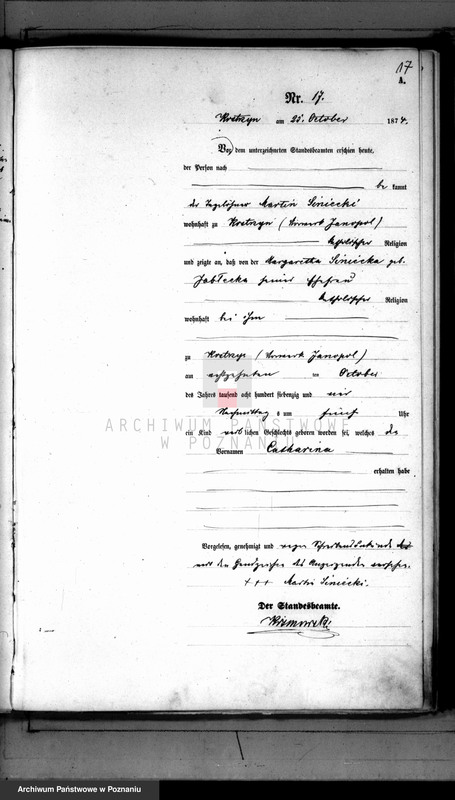 17
A.
Nr. 17.
am 25. October 1874.
Vor dem unterzeichneten Standesbeamten erschien heute,
der Person nach
be kannt
der Tagelöhner Martin Siniecki
wohnhaft zu (Vorwerk Janopol)
katholischer Religion
und zeigte an, daß von der Margaretha Siniecka geb.
Jabłecka seiner Ehefrau
katholischer Religion
wohnhaft bei ihm
zu (Vorwerk Janopol)
am achtzehnten ten October
des Jahres tausend acht hundert siebenzig und vier
Nachmittags um fünf Uhr
ARCHIWUM PAŃSTWOWE
W POZNANIU
ein Kind weiblichen Geschlechts geboren worden sei, welches
Vornamen Catharina
erhalten habe
Vorgelesen, genehmigt und wegen
mit den Handzeichen des Anzeigenden versehen.
+++ Martin Siniecki.
Der Standesbeamte.
Archiwum Państwowe w Poznaniu